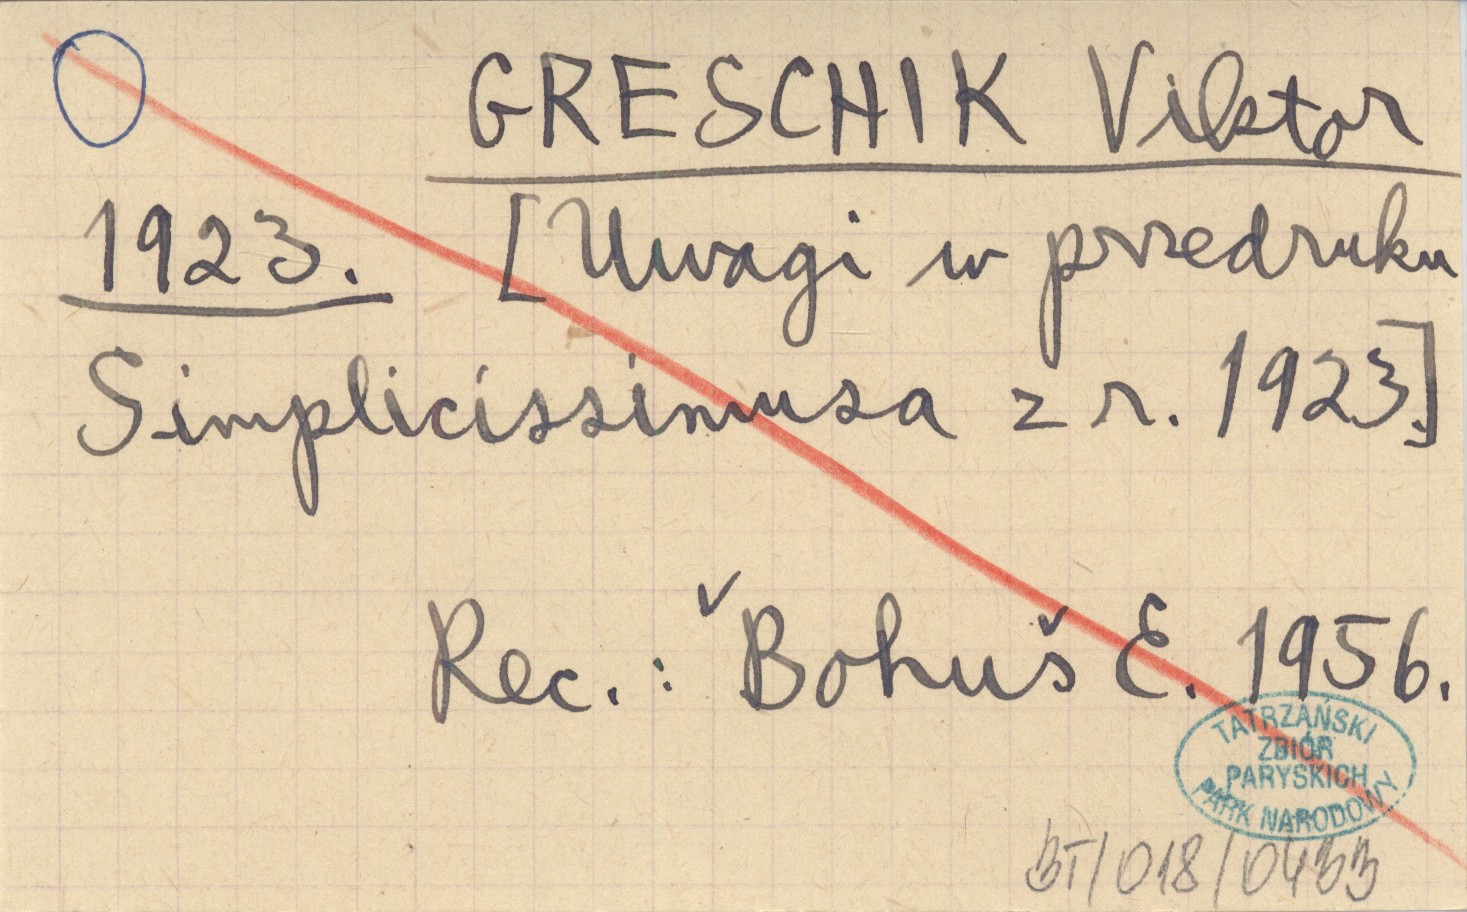 GRESCHIK Viktor
1923. [Uwagi w przedruku
Simplicissimusa z r. 1923.]
Rec.: Bohuš E. 1956.
TATRZAŃSKI
ZBIÓR
PARYSKICH
PARK NARODOWY
BT/018/0433